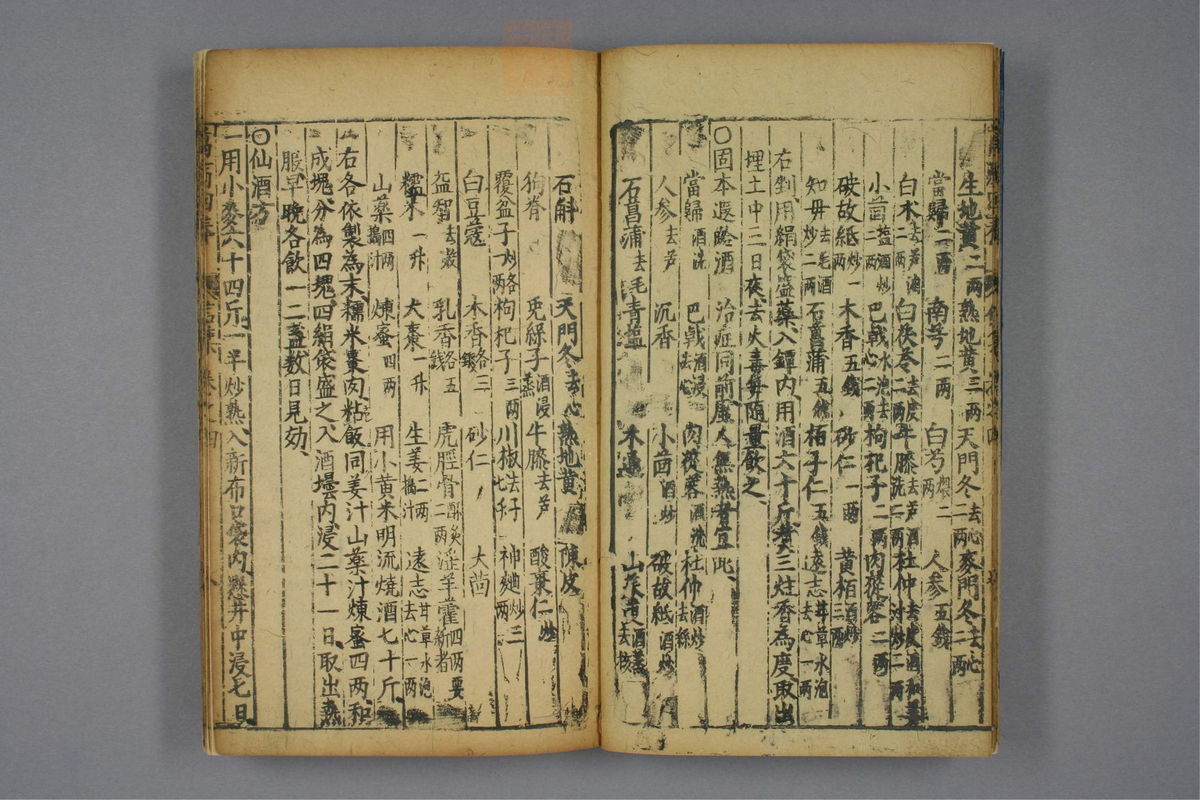 生地黄二兩 熟地黄三兩 天門冬去心二兩 麥門冬去心二兩
當歸二兩 南芎二兩 白芍二兩 人參五錢
白朮去芦油二兩 白茯苓去皮二兩 牛膝去芦酒洗二兩 杜仲去皮酒和姜汁炒二兩
小茴盐酒炒二兩 巴戟水泡去心二兩 枸杞子二兩 肉蓯蓉二兩
破故紙炒一兩 木香五錢 砂仁一兩 黄栢酒炒三兩
知毋去毛酒炒二兩 石菖蒲五錢 栢子仁五錢 遠志甘草水泡去心一兩
右剉用絹袋盛藥入罈內用酒六十斤煑三炷香為度取出
埋土中三日夜去火毒每隨量飲之
○固本遐齡酒 治症同前虛人無熱者宜此
當歸酒洗 巴戟酒浸去心 肉蓯蓉酒洗 杜仲酒炒去絲
人參去芦 沉香 小茴酒炒 破故紙酒炒
石菖蒲去毛 青盐 木通 山茱萸酒蒸去核
石斛 天門冬去心 熟地黄 陳皮
狗脊 兎絲子酒浸蒸 牛膝去芦 酸棗仁炒
覆盆子炒各一兩 枸杞子三兩 川椒去子七 神麯炒三兩
白豆蔻 木香各三錢 砂仁 大茴
益智去殼 乳香各五錢 虎脛骨酥炙二兩 淫羊藿四兩要新者
糯米一升 大棗一升 生姜二兩搗汁 遠志甘草水泡去心一兩
山藥四兩搗汁 煉蜜四兩 用小黄米明流燒酒七十斤
右各依製為末糯米棗肉粘飯同姜汁山藥汁煉蜜四兩和
成塊分為四塊四絹袋盛之入酒壜內浸二十一日取出熱
服早晚各飲一二盞數日見効
○仙酒方
一用小麥六十四斤一半炒熟入新布口袋內懸井中浸七日